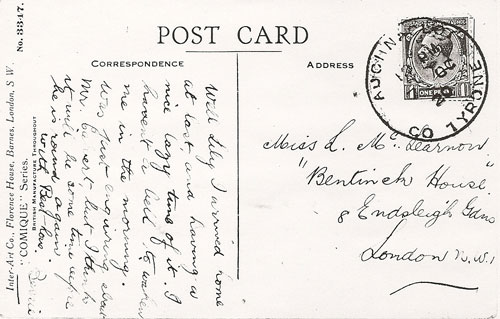 POST CARD
CORRESPONDENCE
ADDRESS
No. 3347.
Inter-Art Co., Florence House, Barnes, London, S W
"COMIQUE" Series.
BRITISH MANUFACTURE THROUGHOUT
Well Lily I arrived home
at last and having a
nice lazy time of it. I
haven't a bell to waken
me in the morning.
was just enquiring about
Mr. but I think
it will be some time before
he is round again.
with Best love.
CO TYRONE
ONE PENNY
Miss L. Mc. Learnon
"Bentinck House,
8 Endsleigh Gdns
London N.W.1